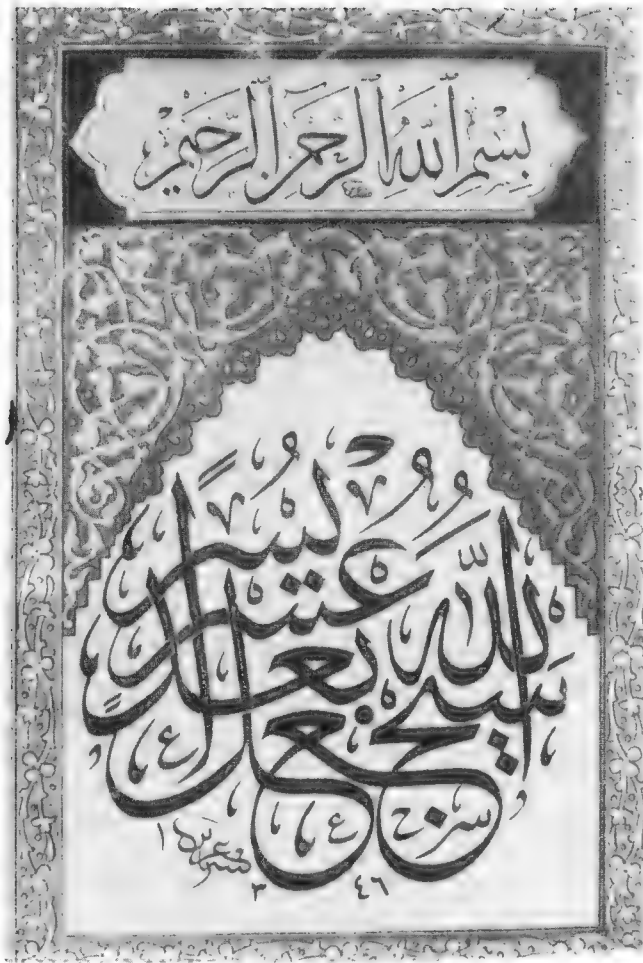 بِسْمِ اللهِ الرَّحْمٰنِ الرَّحِيْمِ
سَيَجْعَلُ اللّٰهُ بَعْدَ عُسْرٍ يُسْرًا